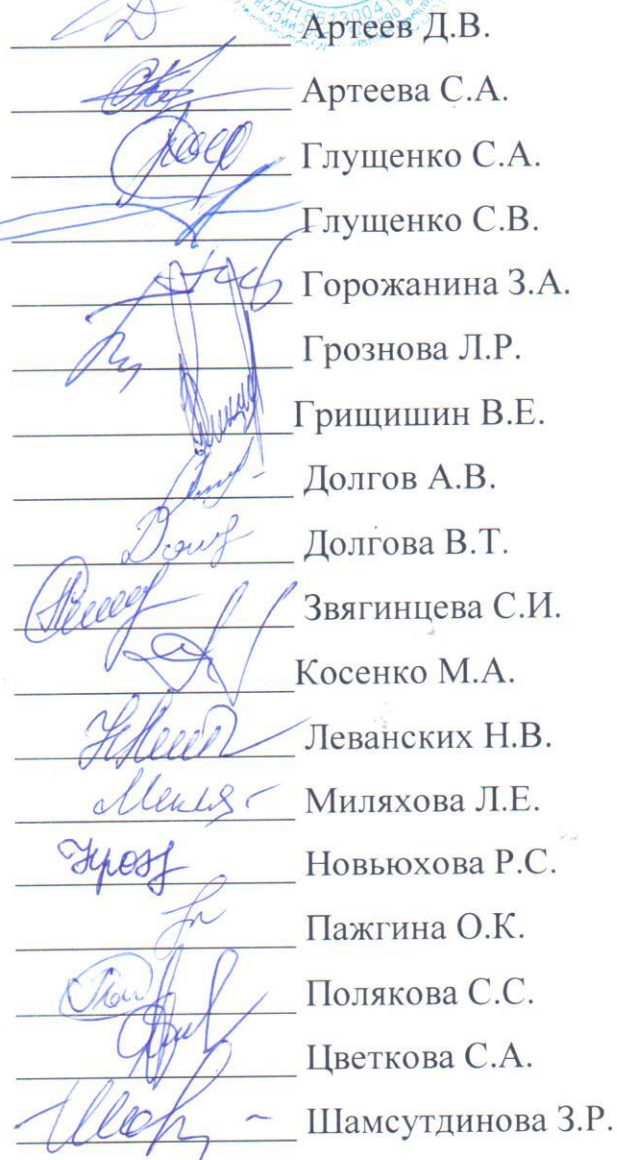 Артеев Д.В.
Артеева С.А.
Глущенко С.А.
Глущенко С.В.
Горожанина З.А.
Грознова Л.Р.
Грищишин В.Е.
Долгов А.В.
Долгова В.Т.
Звягинцева С.И.
Косенко М.А.
Леванских Н.В.
Миляхова Л.Е.
Новьюхова Р.С.
Пажгина О.К.
Полякова С.С.
Цветкова С.А.
Шамсутдинова З.Р.